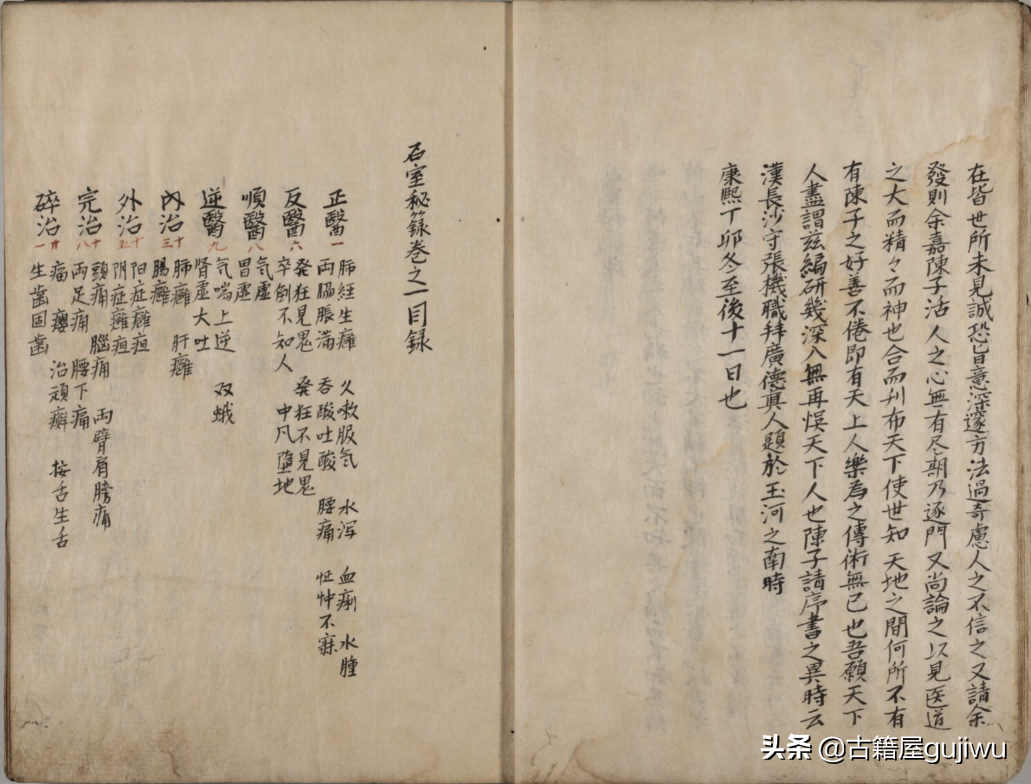 在皆世所未見誠恐旨意深邃方法過奇慮人之不信之又請余
發則余嘉陳子活人之心無有尽期乃逐門又尚論之以見医道
之大而精々而神也合而刋布天下使世知天地之間何所不有
有陳子之好善不倦即有天上人樂為之傳術無已也吾願天下
人盡謂茲編研幾深入無再悞天下人也陳子請序書之異時云
漢長沙守張機職拜廣德真人題於玉河之南時
康熙丁卯冬至後十一日也
石室秘錄卷之一目録
正醫一 肺経生癰 久嗽服気 水泻 血痢 水腫
両脇脹滿 吞酸吐酸 腰痛 怔忡不寐
反醫六 発狂見鬼 発狂不見鬼
卒倒不知人 中风墮地
順醫八 気虛
胃虛
逆醫九 气喘上逆 双蛾
腎虛大吐
內治十三 肺癰 肝癰
腸癰
外治十五 阳症癰疽
阴症癰疽
完治十八 頭痛 腦痛 両臂肩膀痛
両足痛 腰下痛
碎治廿一 瘤 癭 治頑癬 接舌生舌
生齒固齒
头条 @古籍屋gujiwu